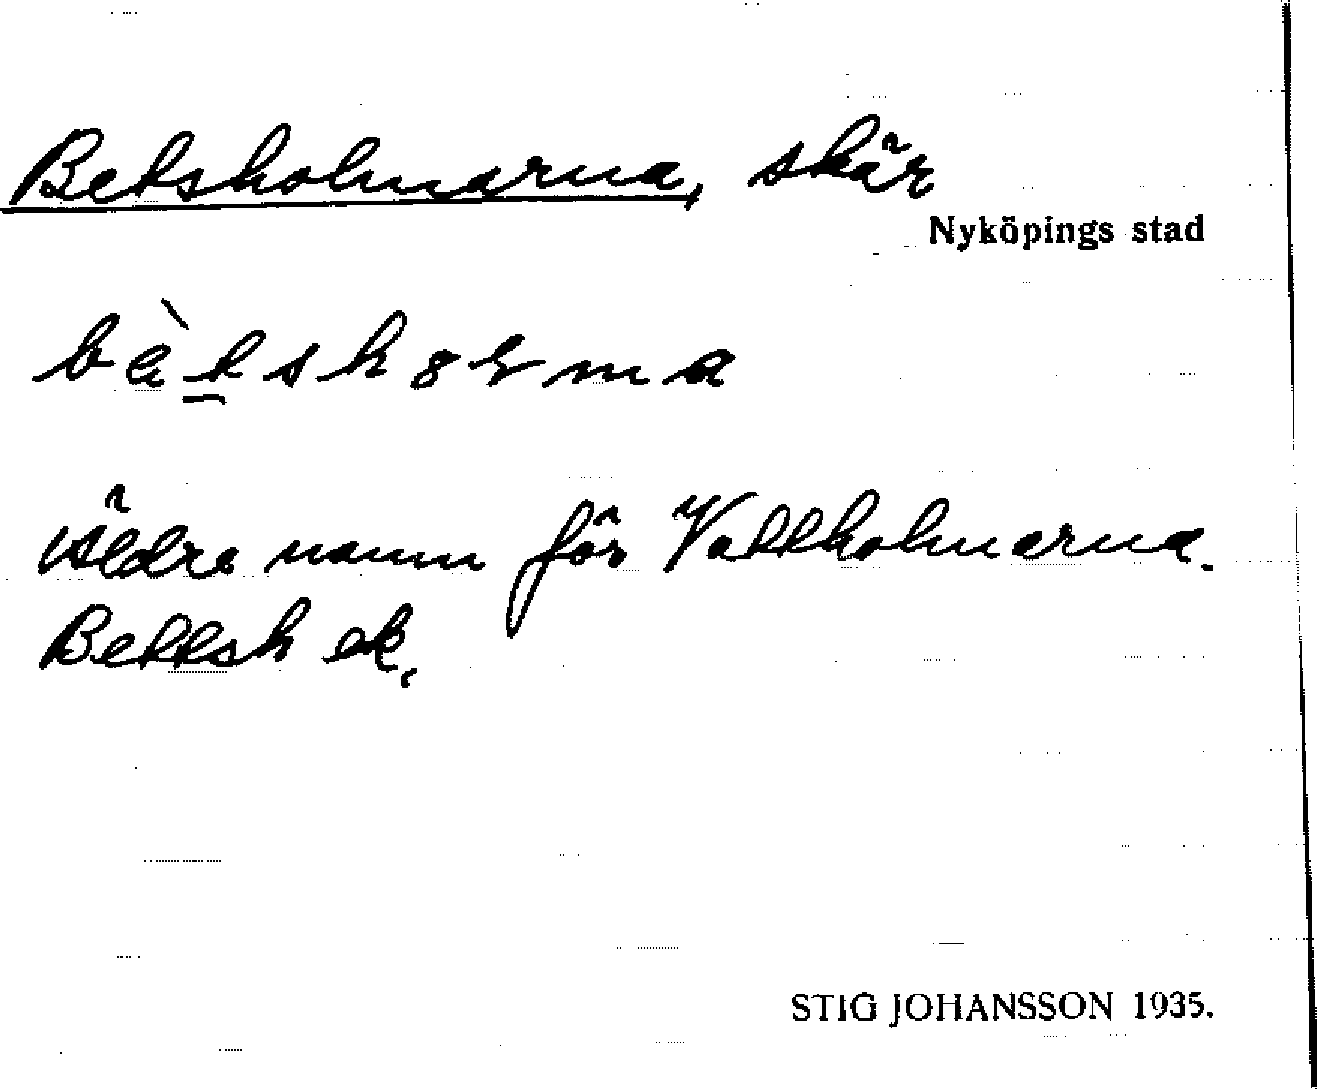 Betsholmarna, skär
Nyköpings stad
bètsh8ɽma
Äldre namn för Vattholmarna.
Bettsh ek.
STIG JOHANSSON 1935.